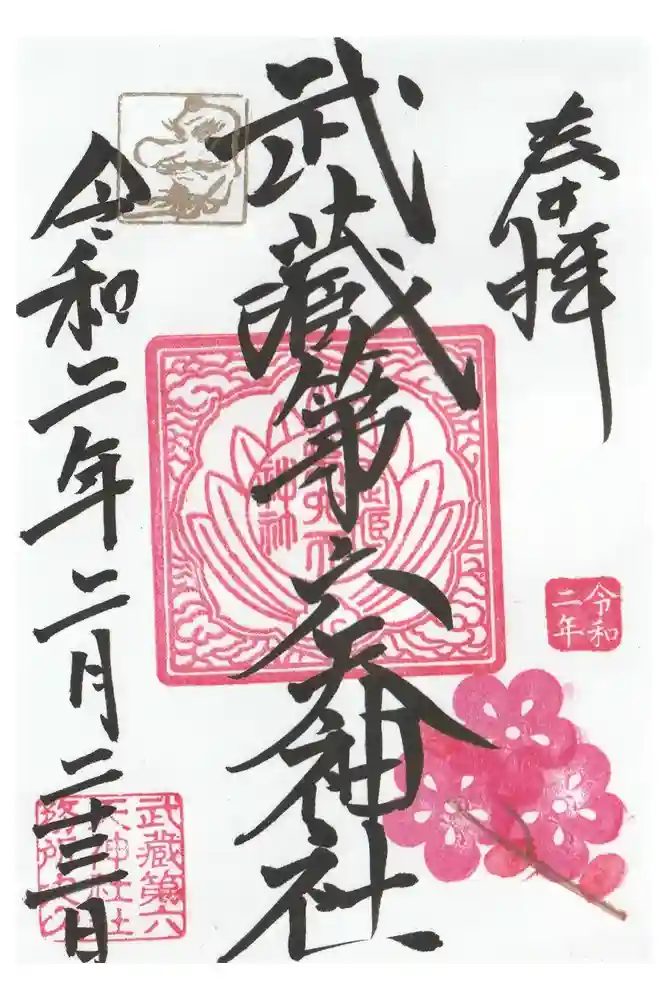 奉拝
令和
二年
武蔵第六天神社
令和二年二月二十三日
武蔵第六
天神社社
務所之印